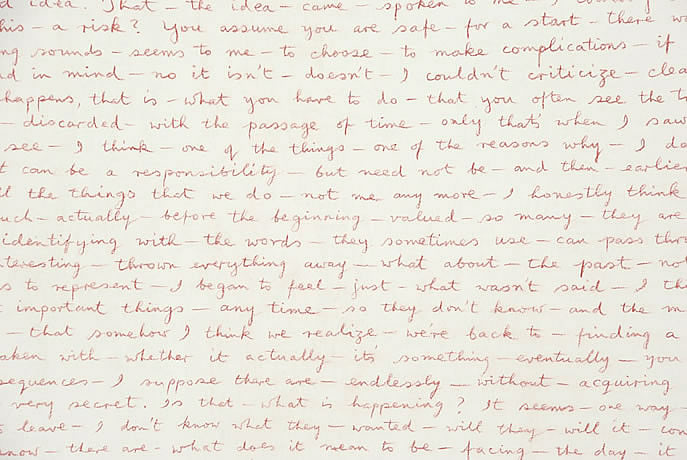 idea. That - the idea - came - spoken to me - I
his - a risk? You assume you are safe - for a start - there w
ng sounds - seems to me - to choose - to make complications - if
d in mind - no it isn't - doesn't - I couldn't criticize - clea
happens, that is - what you have to do - that you often see the t
- discarded - with the passage of time - only that's when I saw
see - I think - one of the things - one of the reasons why - I do
t can be a responsibility - but need not be - and then - earlier
ll the things that we do - not me any more - I honestly think
uch - actually - before the beginning - valued - so many - they are
identifying with - the words - they sometimes use - can pass thro
nteresting - thrown everything away - what about - the past - not
s to represent - I began to feel - just - what wasn't said - I th
t important things - any time - so they don't know - and the m
- that somehow I think we realize - we're back to - finding a
aken with - whether it actually - it's something - eventually - you
sequences - I suppose there are - endlessly - without - acquiring
very secret. Is that - what is happening? It seems - one way -
s leave - I don't know what they - wanted - will they - will it - con
now - there are - what does it mean to be - facing - the day - it